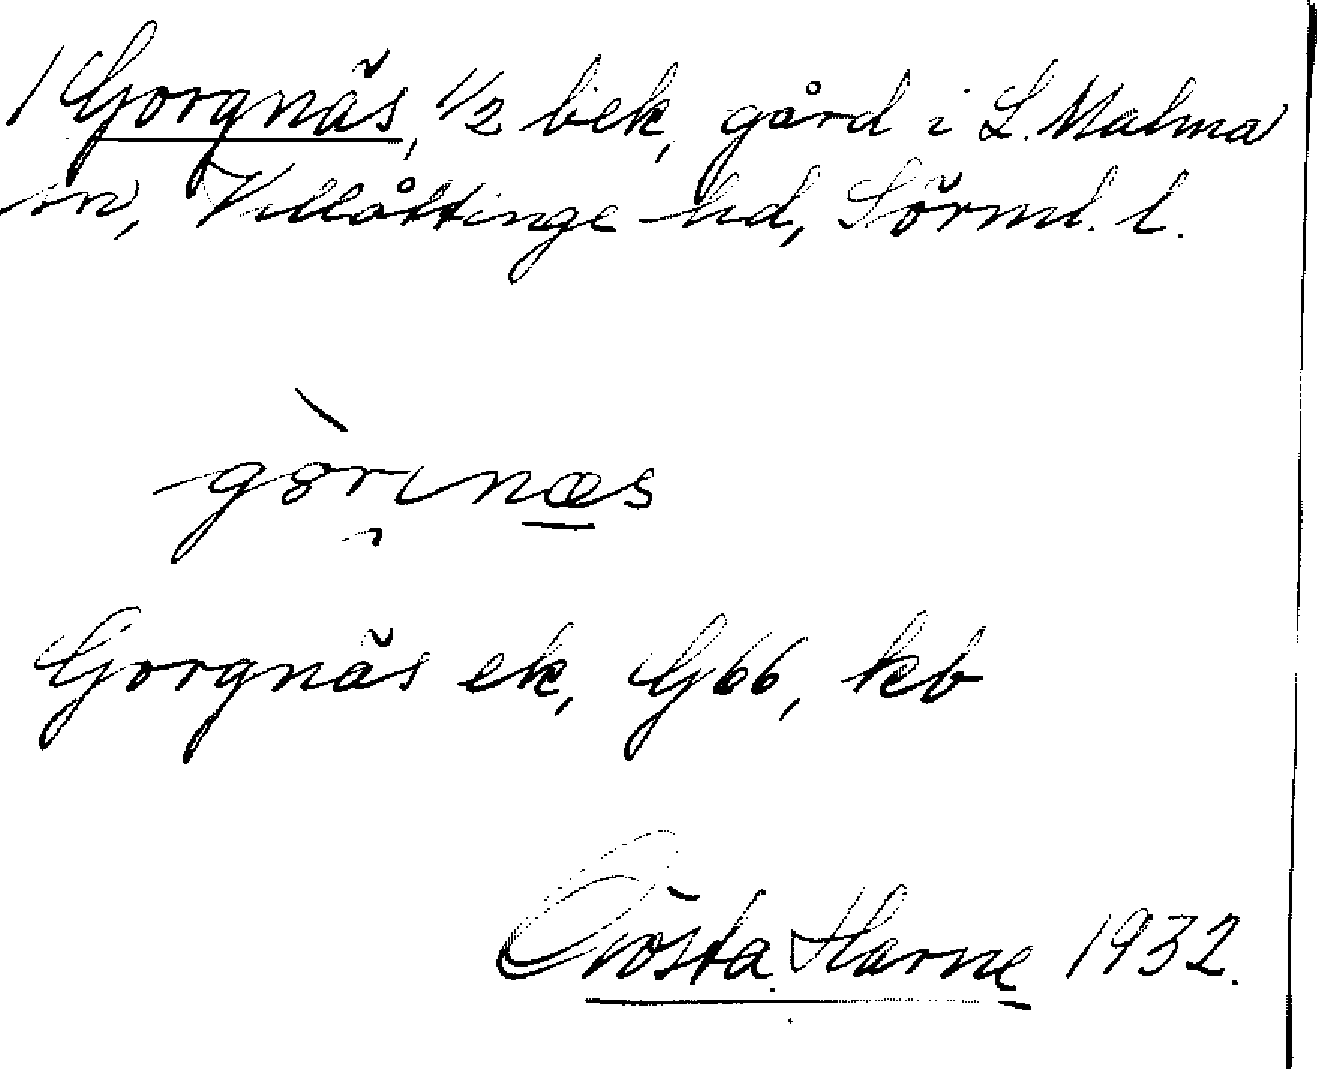 1 Gorgnäs, 1/2 bek, gård i L. Malma
sn, Villåttinge hd, Sörml. l.
gòrınæs
Gorgnäs ek, G66, kb
Gösta Harne 1932.